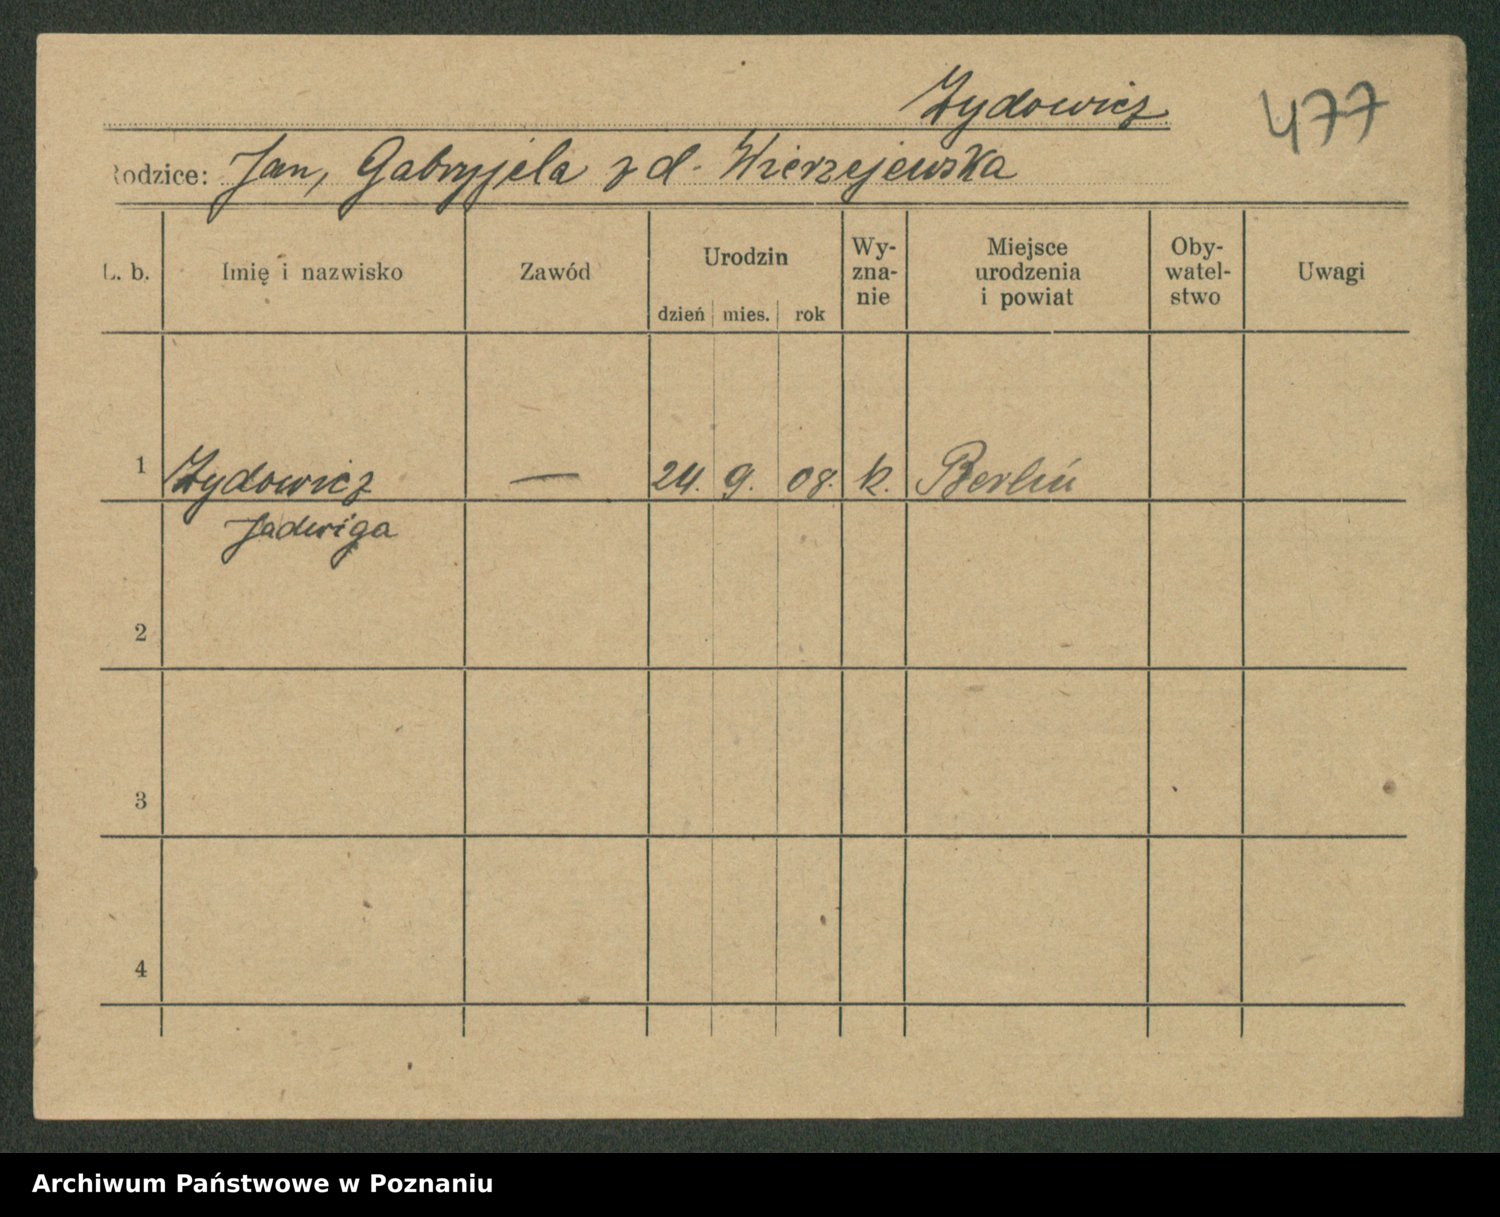 Żydowicz 477
Rodzice: Jan, Gabryjela z d. Wierzejewska
L. b. Imię i nazwisko Zawód Urodzin dzień mies. rok Wy-zna-nie Miejsce urodzenia i powiat Oby-watel-stwo Uwagi
1 Żydowicz — 24. 9. 08. k. Berlin
Jadwiga
2
3
4
Archiwum Państwowe w Poznaniu